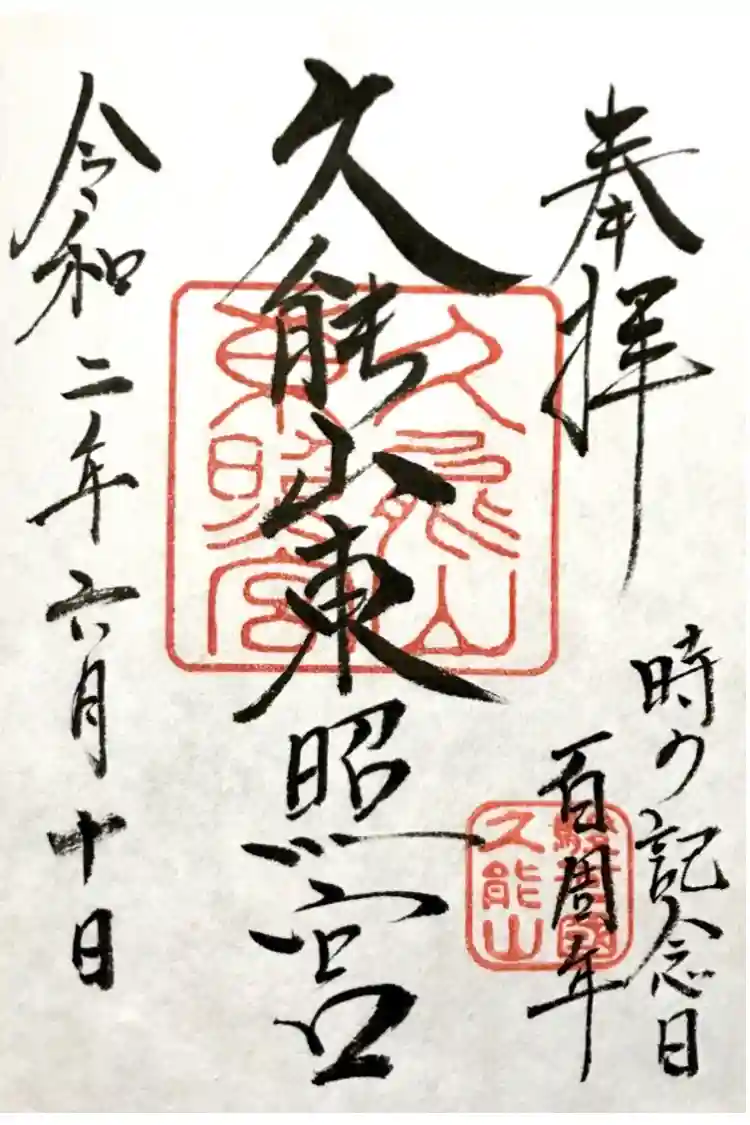 奉拝
時の記念日
百周年
駿河國
久能山
久能山東照宮
久能山
東照宮
令和二年六月十日